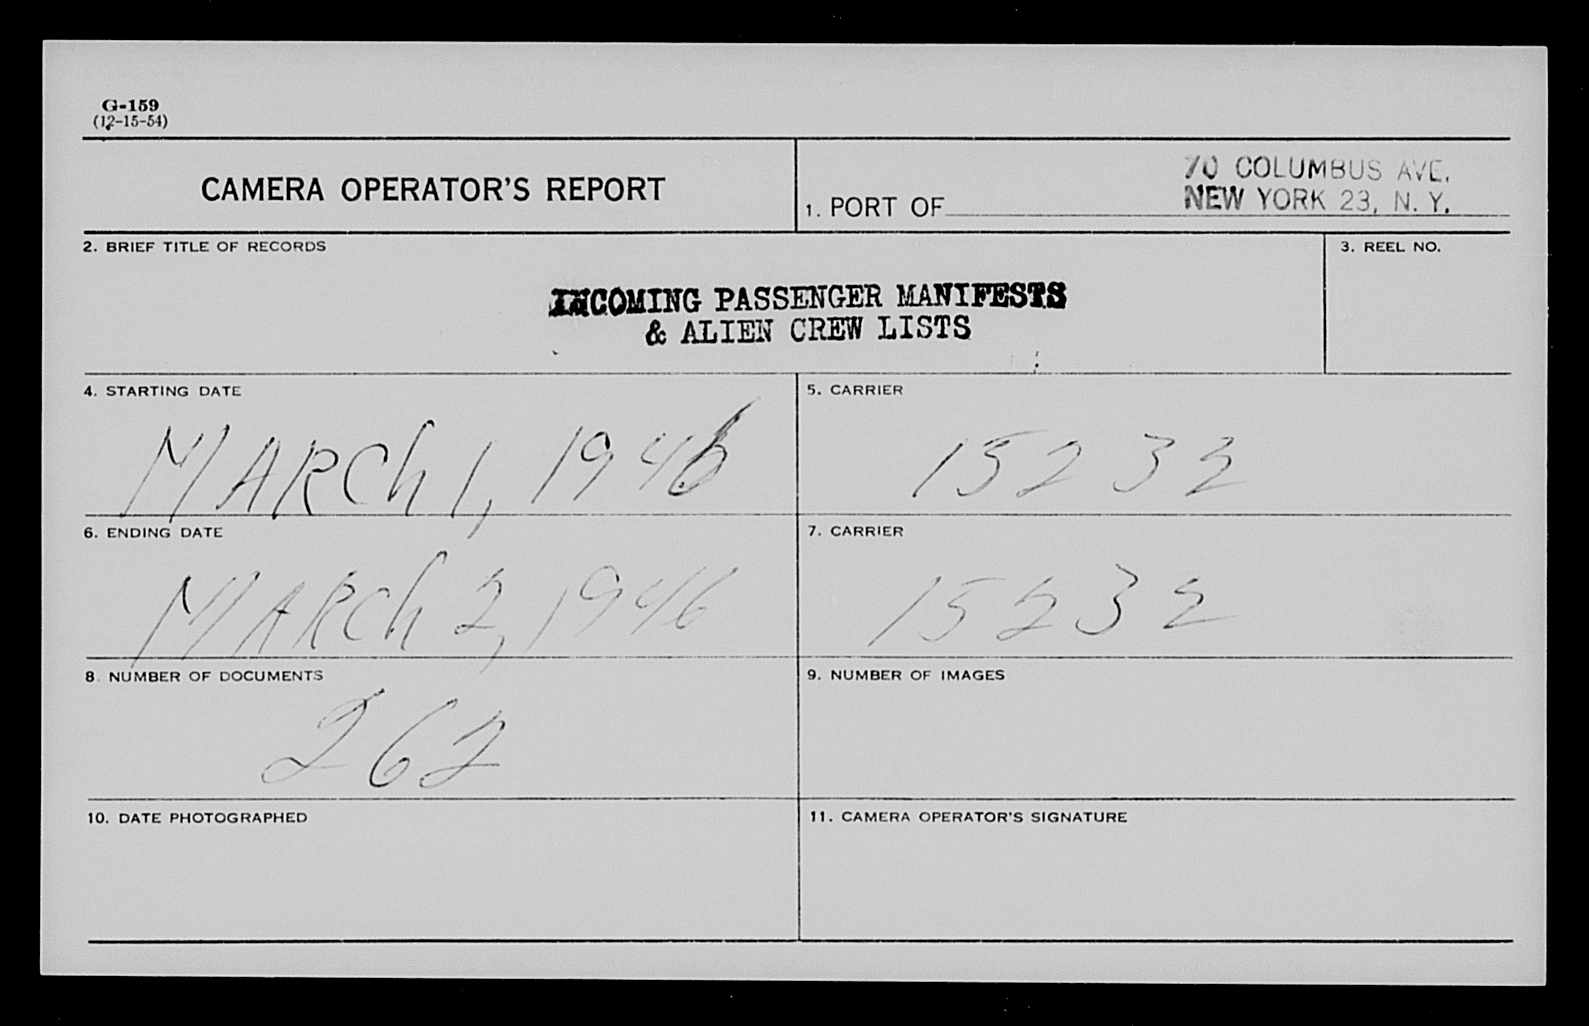 G-159
(12-15-54)
CAMERA OPERATOR'S REPORT
1. PORT OF
70 COLUMBUS AVE.
NEW YORK 23, N. Y.
2. BRIEF TITLE OF RECORDS
3. REEL NO.
INCOMING PASSENGER MANIFESTS
& ALIEN CREW LISTS
4. STARTING DATE
5. CARRIER
MARCh 1, 1946
15232
6. ENDING DATE
7. CARRIER
MARCh 2, 1946
15232
8. NUMBER OF DOCUMENTS
9. NUMBER OF IMAGES
262
10. DATE PHOTOGRAPHED
11. CAMERA OPERATOR'S SIGNATURE